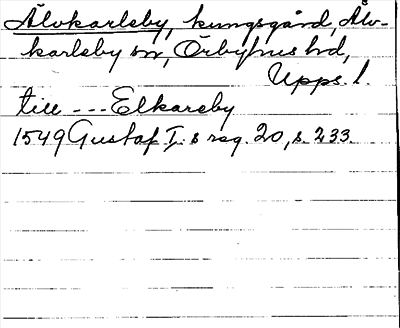 Älvkarleby, kungsgård, Älv-
karleby sn, Örbyhus hd,
Upps. l.
till --- Elkareby
1549 Gustaf I:s reg. 20, s. 233.